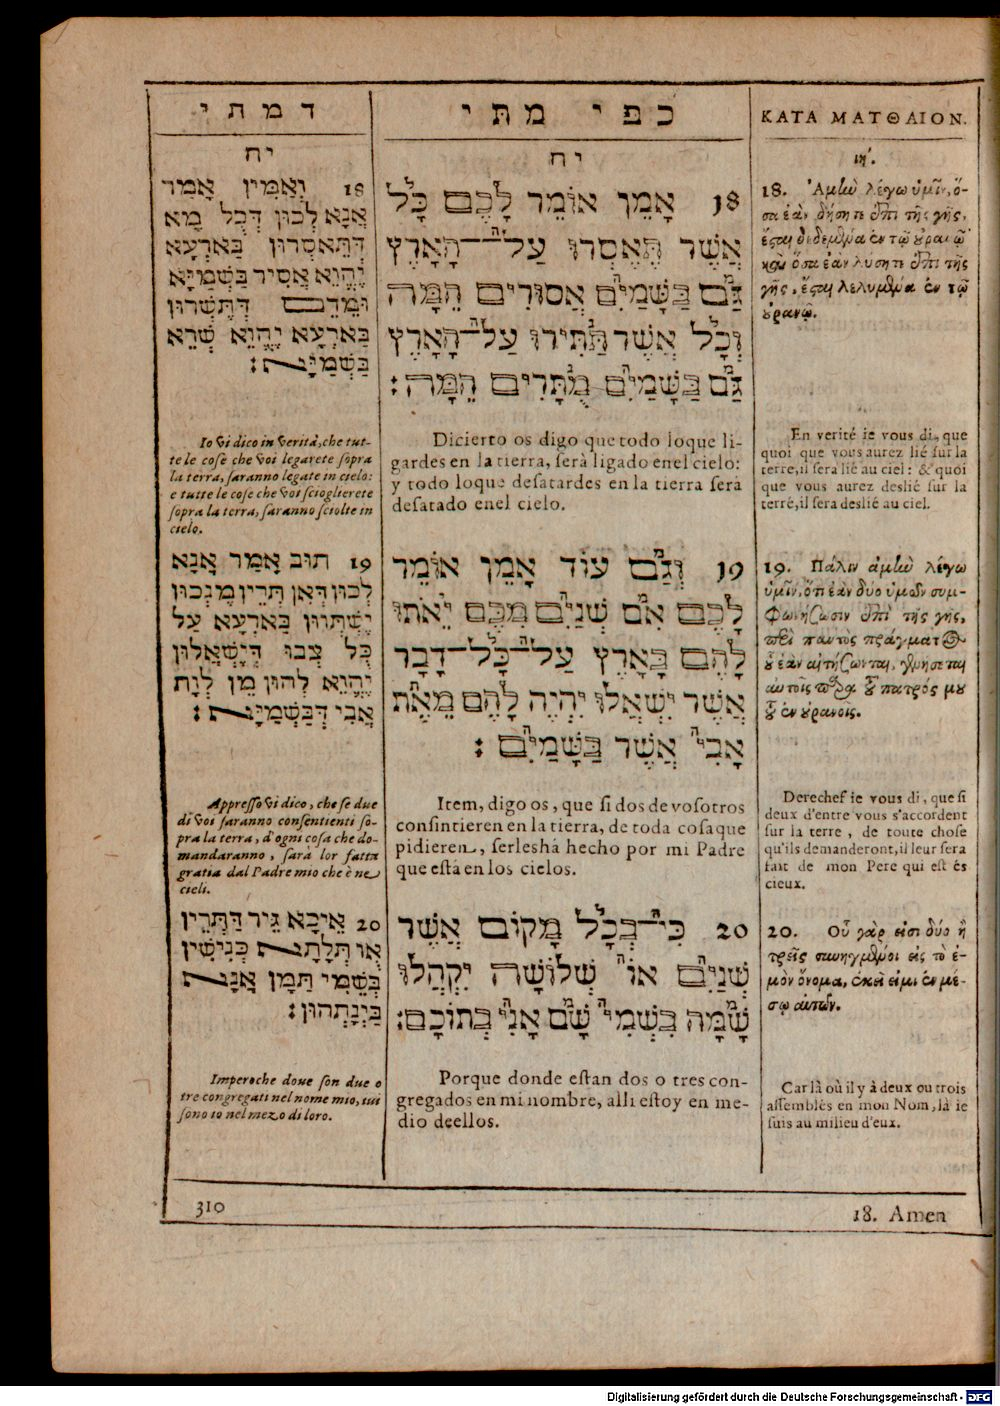 דמתי
יח
18 וַאמִין אָמַר
אֲנָא לְכוּן דְּכֻל מָא
דְּתֵּאסְרוּן בַּארְעָא
יֶהֱוֵא אֲסִיר בַּשְׁמַיָּא
וּמֶדֵם דְּתֶשְׁרוּן
בַּארְעָא יֶהֱוֵא שְׁרֵא
בַּשְׁמַיָּא :
Io vi dico in verità, che tut-
te le cose che voi legarete sopra
la terra, saranno legate in cielo:
e tutte le cose che voi scioglierete
sopra la terra, saranno sciolte in
cielo.
19 תּוּב אָמַר אֲנָא
לְכוּן דְּאִן תְּרֵין מֶנְכוּן
יֶשְׁתְּווּן בַּארְעָא עַל
כֻּל צְבוּ דְּיֶשְׁאֲלוּן
יֶהֱוֵא לְהוּן מֵן לְוָת
אֲבִי דְּבַשְׁמַיָּא :
Appresso vi dico, che se due
di voi saranno consentienti so-
pra la terra, d'ogni cosa che do-
mandaranno, sarà lor fatta
gratia dal Padre mio che è ne
cieli.
20 אֵיכָא גֵּיר דַּתְרֵין
אֲו תְּלָתָא כְּנִישִׁין
בְּשֵׁמִי תַּמָּן אֲנָא
בַּיְנָתְהוּן :
Imperoche doue son due o
tre congregati nel nome mio, iui
sono io nel mezo di loro.
כפי מתי
יח
18 אָמֵן אוֹמֵר לָכֶם כָּל
אֲשֶׁר תֶּאֶסְרוּ עַל־הָאָרֶץ
גַּם בַּשָּׁמַיִם אֲסוּרִים הֵמָּה
וְכָל אֲשֶׁר תַּתִּירוּ עַל הָאָרֶץ
גַּם בַּשָּׁמַיִם מֻתָּרִים הֵמָּה :
Dicierto os digo que todo loque li-
gardes en la tierra, serà ligado enel cielo:
y todo loque desatardes en la tierra serà
desatado enel cielo.
19 וְגַם עוֹד אָמֵן אוֹמֵר
לָכֶם אִם שְׁנַיִם מִכֶּם יֵאֹתוּ
לָהֶם בָּאָרֶץ עַל־כָּל־דָּבָר
אֲשֶׁר יִשְׁאֲלוּ יִהְיֶה לָהֶם מֵאֵת
אָבִי אֲשֶׁר בַּשָּׁמַיִם :
Item, digo os, que si dos de vosotros
consintieren en la tierra, de toda cosaque
pidieren, serlesha hecho por mi Padre
que esta en los cielos.
20 כִּי־בְּכָל מָקוֹם אֲשֶׁר
שְׁנַיִם אוֹ שְׁלוֹשָׁה יִקְהֲלוּ
שָׁמָּה בִּשְׁמִי שָׁם אֲנִי בְּתוֹכָם :
Porque donde estan dos o tres con-
gregados en mi nombre, alli estoy en me-
dio deellos.
ΚΑΤΑ ΜΑΤΘΑΙΟΝ.
ιη'.
18. Ἀμὼ λέγω ὑμῖν, ὅ-
σα ἐὰν δήσητε ἐπὶ τῆς γῆς,
ἔσται δεδεμένα ἐν τῷ οὐρανῷ
καὶ ὅσα ἐὰν λύσητε ἐπὶ τῆς
γῆς, ἔσται λελυμένα ἐν τῷ
οὐρανῷ.
En verité ie vous di, que
quoi que vous aurez lié sur la
terre, il sera lié au ciel : & quoi
que vous aurez deslié sur la
terré, il sera deslié au ciel.
19. Πάλιν ἀμὼ λέγω
ὑμῖν, ὅτι ἐὰν δύο ὑμῶν συμ-
φωνήσωσιν ἐπὶ τῆς γῆς,
περὶ παντὸς πράγματος
οὗ ἐὰν αἰτήσωνται, γενήσεται
αὐτοῖς παρὰ τοῦ πατρός μου
τοῦ ἐν οὐρανοῖς.
Derechef ie vous di, que si
deux d'entre vous s'accordent
sur la terre, de toute chose
qu'ils demanderont, il leur sera
fait de mon Pere qui est és
cieux.
20. Οὗ γάρ εἰσι δύο ἢ
τρεῖς συνηγμένοι εἰς τὸ ἐ-
μὸν ὄνομα, ἐκεῖ εἰμι ἐν μέ-
σῳ αὐτῶν.
Car là où il y à deux ou trois
assemblés en mon Nom, là ie
suis au milieu d'eux.
310
18. Amen
Digitalisierung gefördert durch die Deutsche Forschungsgemeinschaft - DFG